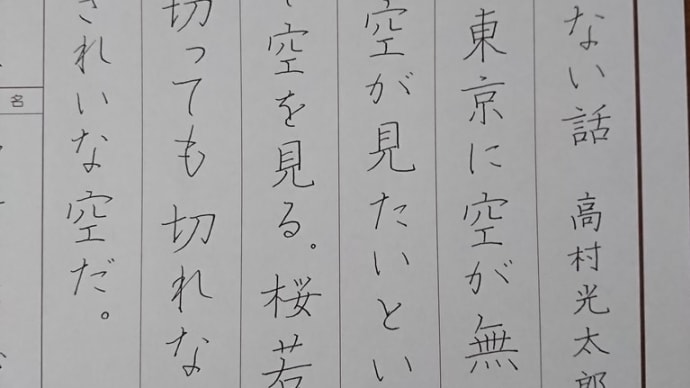 ない話 高村光太郎
東京に空が無
空が見たいとい
空を見る。桜若
切っても切れな
きれいな空だ。
名